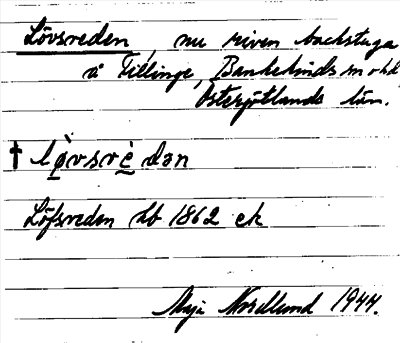 Lövsveden, nu riven backstuga
å Tillinge, Bankekinds sn o hd
Östergötlands län.
† lø̀vsvè dən
Löfsveden hb 1862 ek
Maja Nordlund 1944.